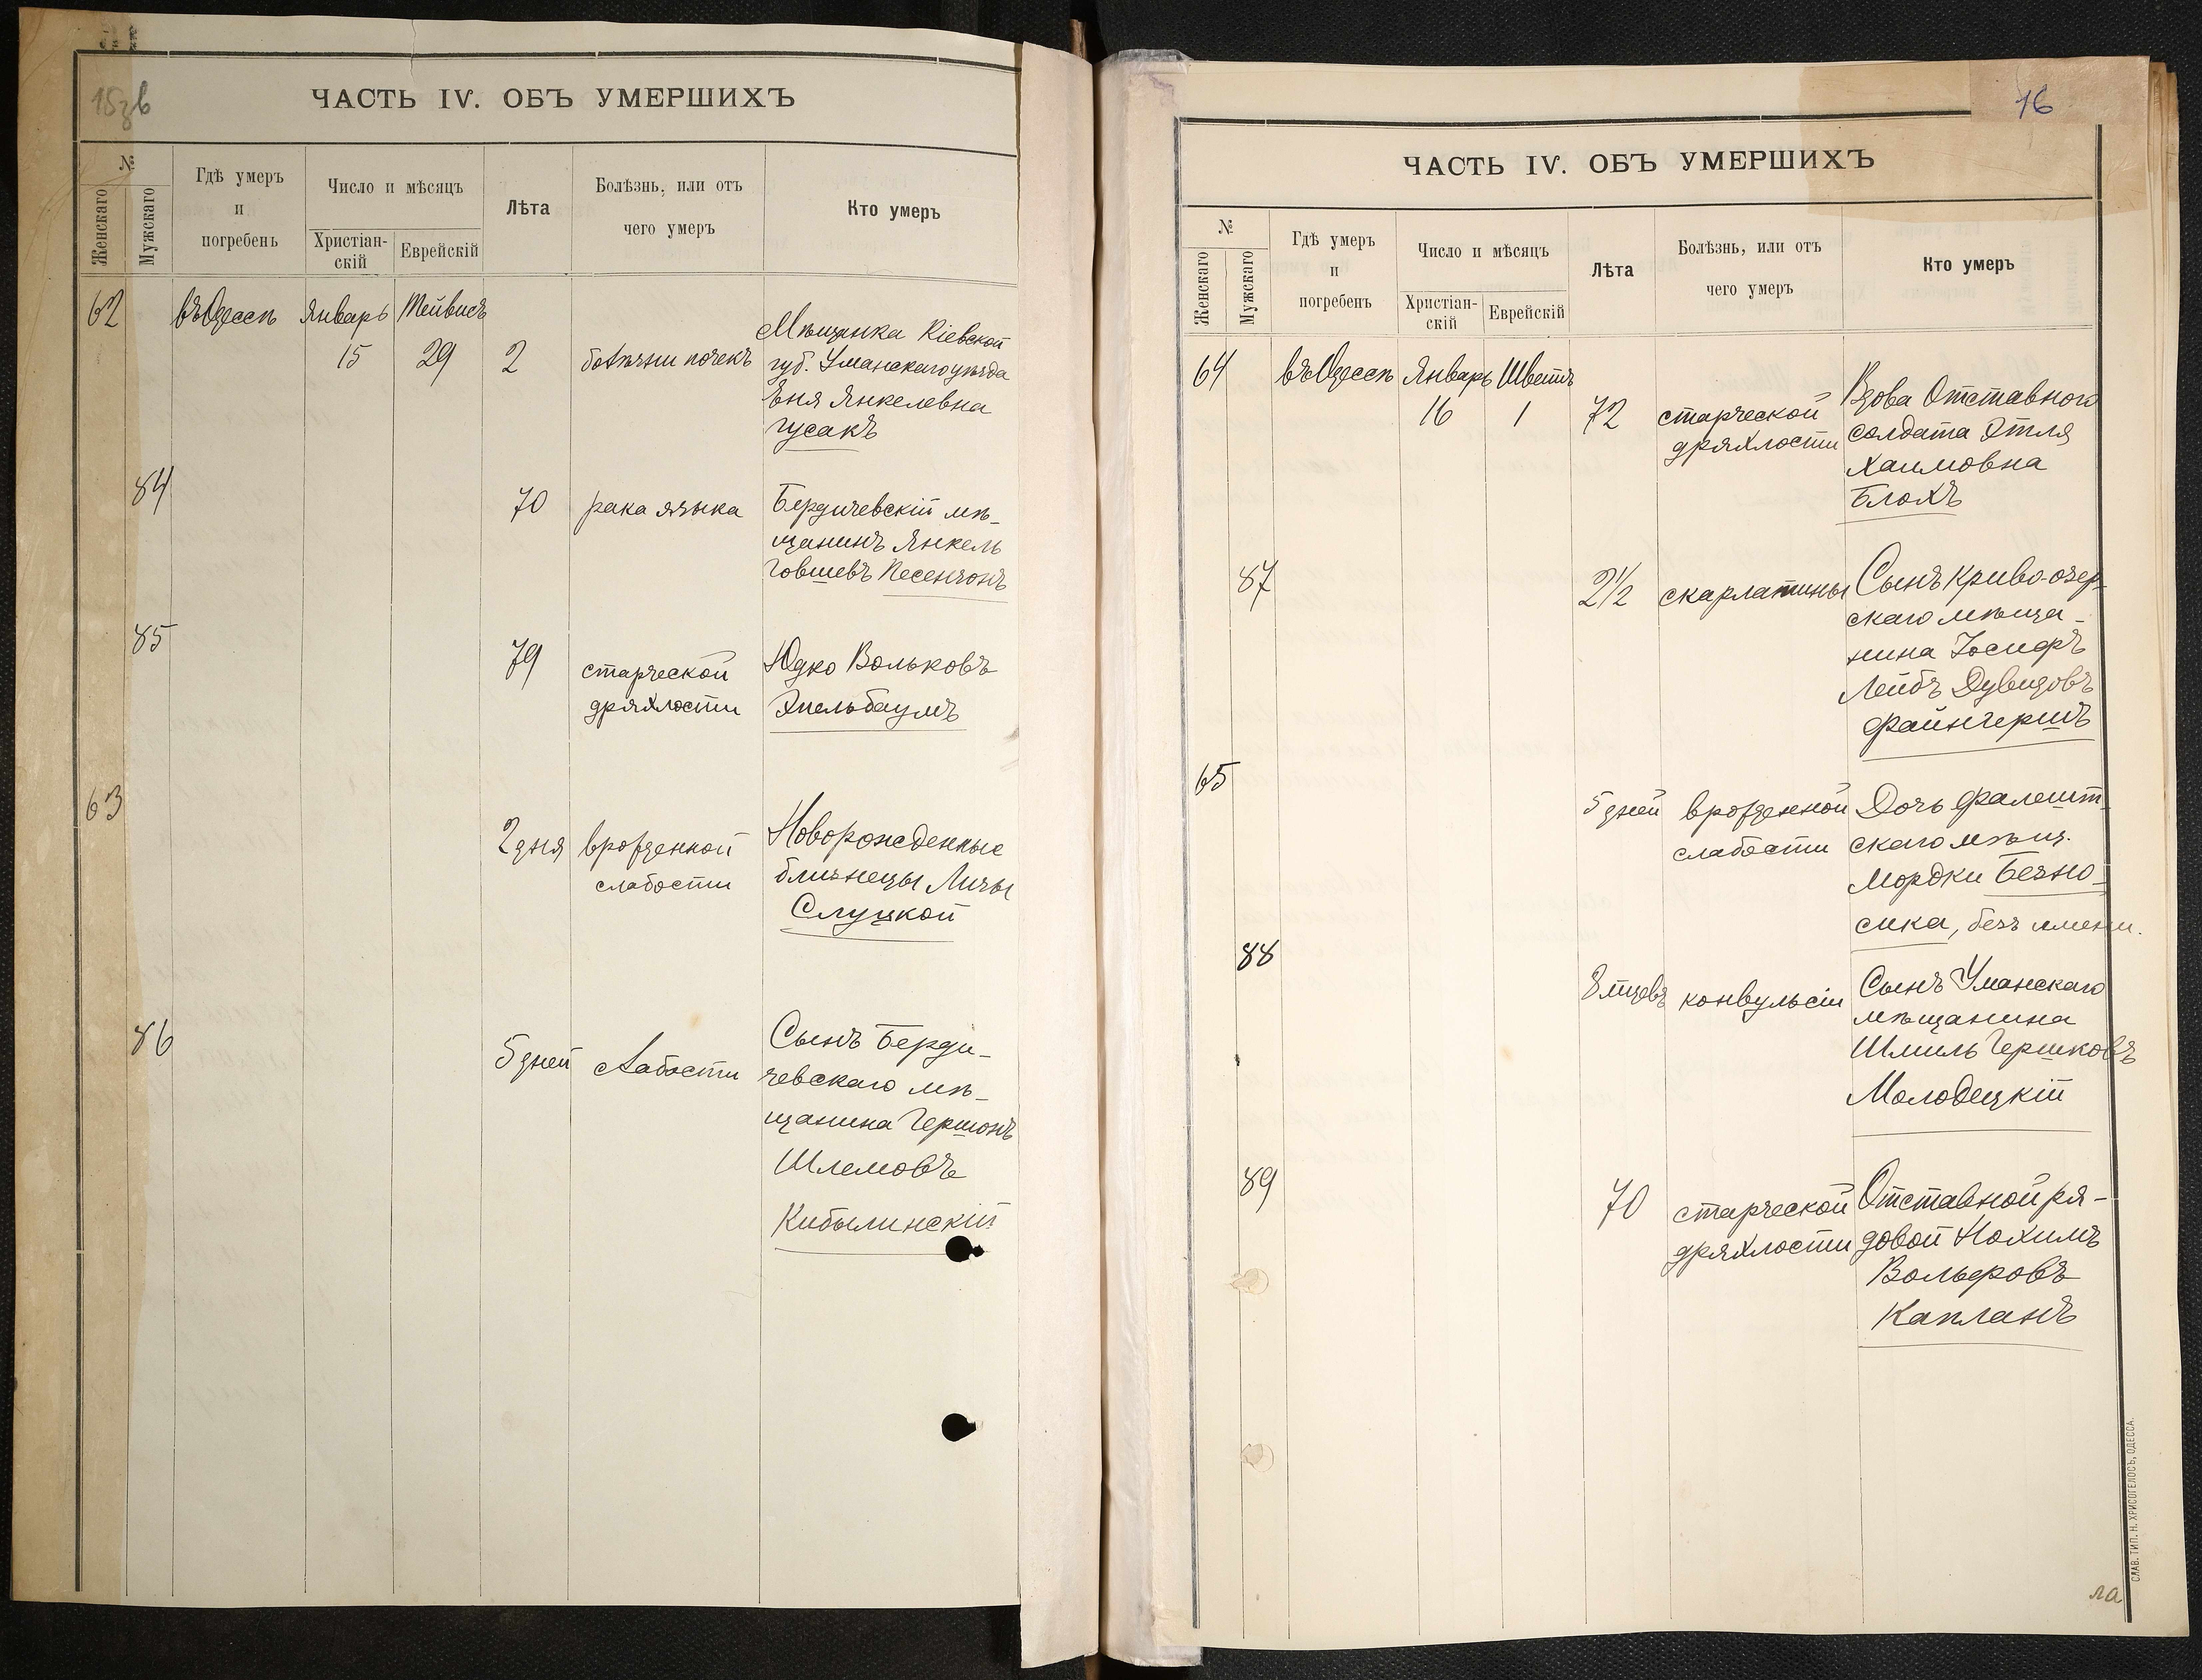 15зв
ЧАСТЬ IV. ОБЪ УМЕРШИХЪ
№
Женскаго
Мужскаго
Гдѣ умеръ
и
погребенъ
Число и мѣсяцъ
Христіан-
скій
Еврейскій
Лѣта
Болѣзнь, или отъ
чего умеръ
Кто умеръ
62 въ Одессѣ Январь Тейвисъ
15 29 2 болѣзни почекъ
Мѣщанка Кіевской
губ. Уманскаго уѣзда
Эня Янкелевна
Гусакъ
84 70 рака языка
Бердичевскій мѣ-
щанинъ Янкель
Іовшевъ Песензонъ
85 79 старческой
дряхлости
Юдко Вольковъ
Эпельбаумъ
63 2 дня врожденной
слабости
Новорожденные
близнецы Лизы
Слуцкой
86 5 дней слабости
Сынъ Берди-
чевскаго мѣ-
щанина Гершонъ
Шлемовъ
Кибылинскій
16
ЧАСТЬ IV. ОБЪ УМЕРШИХЪ
№
Женскаго
Мужскаго
Гдѣ умеръ
и
погребенъ
Число и мѣсяцъ
Христіан-
скій
Еврейскій
Лѣта
Болѣзнь, или отъ
чего умеръ
Кто умеръ
64 въ Одессѣ Январь Шветъ
16 1 72 старческой
дряхлости
Вдова Отставного
солдата Этля
Хаимовна
Блохъ
87 2 1/2 скарлатины
Сынъ Криво-озер-
скаго мѣща-
нина Іосифъ
Лейбъ Дувидовъ
Файнгершъ
65 5 дней врожденной
слабости
Дочь Фалешт-
скаго мѣщ.
Мордки Безно-
сика, безъ имени.
88 8 мцевъ конвульсіи
Сынъ Уманскаго
мѣщанина
Шмиль Гершковъ
Молодецкій
89 70 старческой
дряхлости
Отставной ря-
довой Нохимъ
Вольфовъ
Капланъ
СЛАВ. ТИП. Н. ХРИСОГЕЛОСЪ, ОДЕССА.